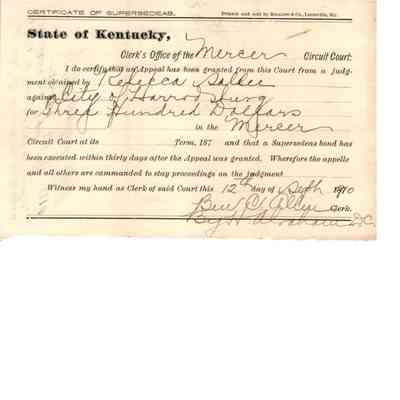 CERTIFICATE OF SUPERSEDEAS.
State of Kentucky,
Clerk's Office of the Mercer Circuit Court:
I do certify that an Appeal has been granted from this Court from a judg-
ment obtained by Rebecca
against City of Harrodsburg
for Three Hundred Dollars
in the Mercer
Circuit Court at its Term, 187 and that a Supersedeas bond has
been executed within thirty days after the Appeal was granted. Wherefore the appelle
and all others are commanded to stay proceedings on the judgment
Witness my hand as Clerk of said Court this 12th day of Sept 1910
Ben C Allin Clerk.
By H Abraham D.C.